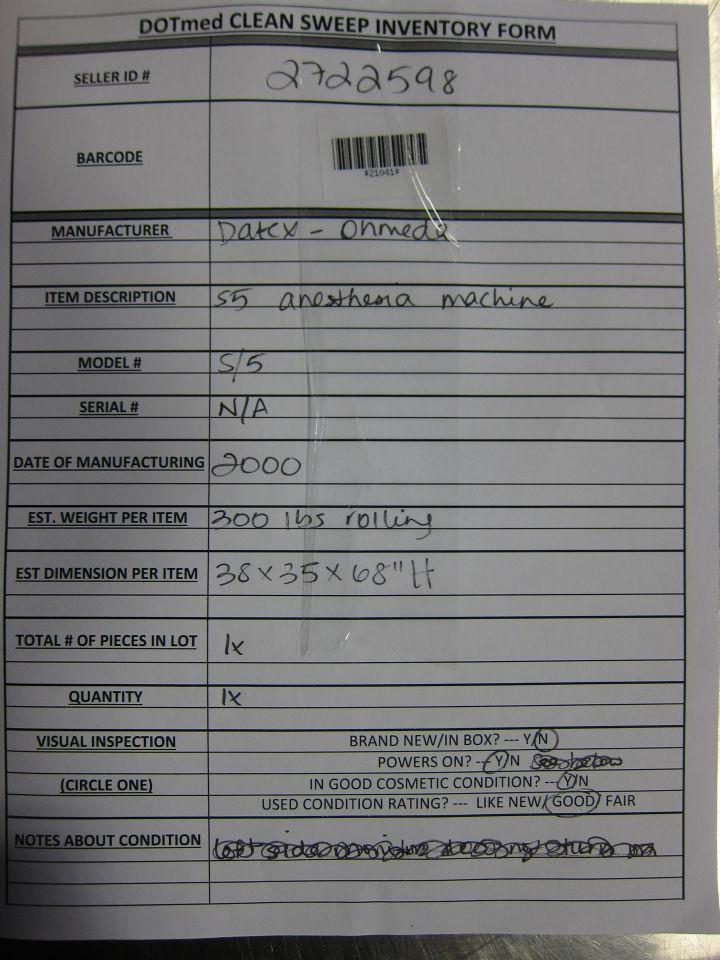 DOTmed CLEAN SWEEP INVENTORY FORM
SELLER ID # 2722598
BARCODE
*21041*
MANUFACTURER Datex - Ohmeda
ITEM DESCRIPTION S5 anesthesia machine
MODEL # S/5
SERIAL # N/A
DATE OF MANUFACTURING 2000
EST. WEIGHT PER ITEM 300 lbs rolling
EST DIMENSION PER ITEM 38x35x68"H
TOTAL # OF PIECES IN LOT 1x
QUANTITY 1x
VISUAL INSPECTION BRAND NEW/IN BOX? --- Y/N
POWERS ON? --Y/N
(CIRCLE ONE) IN GOOD COSMETIC CONDITION? ---Y/N
USED CONDITION RATING? --- LIKE NEW/GOOD/ FAIR
NOTES ABOUT CONDITION